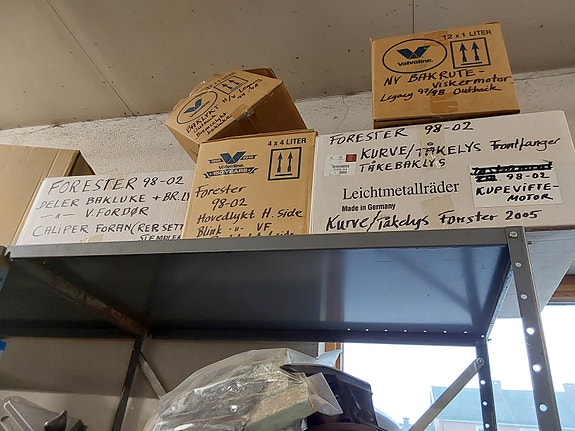 12 x 1 LITER
Valvoline
NY BAKRUTE-
VISKERMOTOR
Legacy 99/98 Outback
Valvoline
4 x 4 LITER
150 YEARS
Forester
98-02
Hovedlykt H. Side
Blink -"- VF
FORESTER 98-02
DELER BAKLUKE + BR.LY
-"- V. FORDØR
CALIPER FORAN (RER SETT
FORESTER 98-02
KURVE/TÅKELYS Frontfanger
TÅKEBAKLYS
Leichtmetallräder
Made in Germany
Kurve/Tåkelys Forester 2005
98-02
KUPEVIFTE-
MOTOR